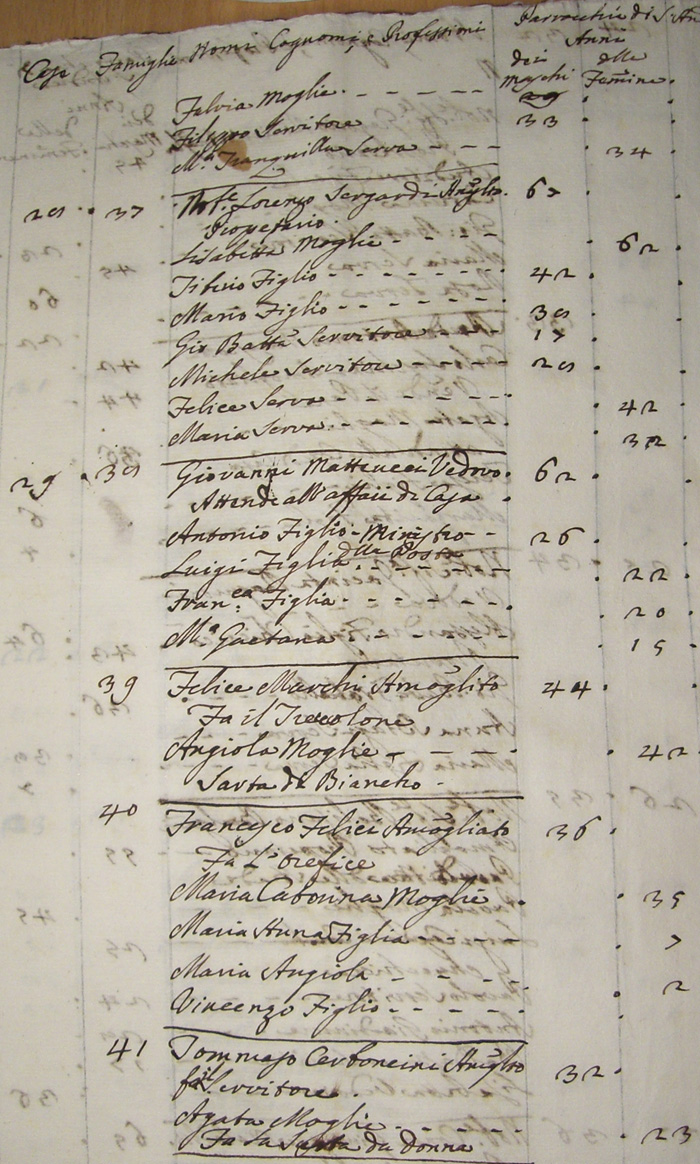 Case Famiglie Nomi Cognomi, e Professioni Parrocchia di S. An
Anni
dei delle
Maschi Femine
Fulvia Moglie
Filippo Servitore 33
M.ª Tranquilla Serva 34
37 Lorenzo Sergardi Amg̃lto. 67
Possidente
Lisabetta Moglie 62
Tiberio Figlio 42
Mario Figlio
Gio Batta Servitore 17
Michele Servitore
Felice Serva 42
Maria Serva 32
29 Giovanni Matteucci Vedovo. 62
Attende all'affari di Casa
Antonio Figlio - Ministro 26
della Posta
Luigi Figlia 22
Fran.ca Figlia 20
M.ª Gaetana 15
39 Felice Marchi Amõglito 44
Fa il Treccolone
Angiola Moglie 42
Sarta di Biancho
40 Francesco Felici Amõgliato 36
Fa L'orefice
Maria Caterina Moglie 35
Maria Anna Figlia 7
Maria Angiola 2
Vincenzo Figlio
41 Tommaso Cerboncini Amg̃lto 32
fa il Servitore
Agata Moglie 23
Fa La Sarta da Donna